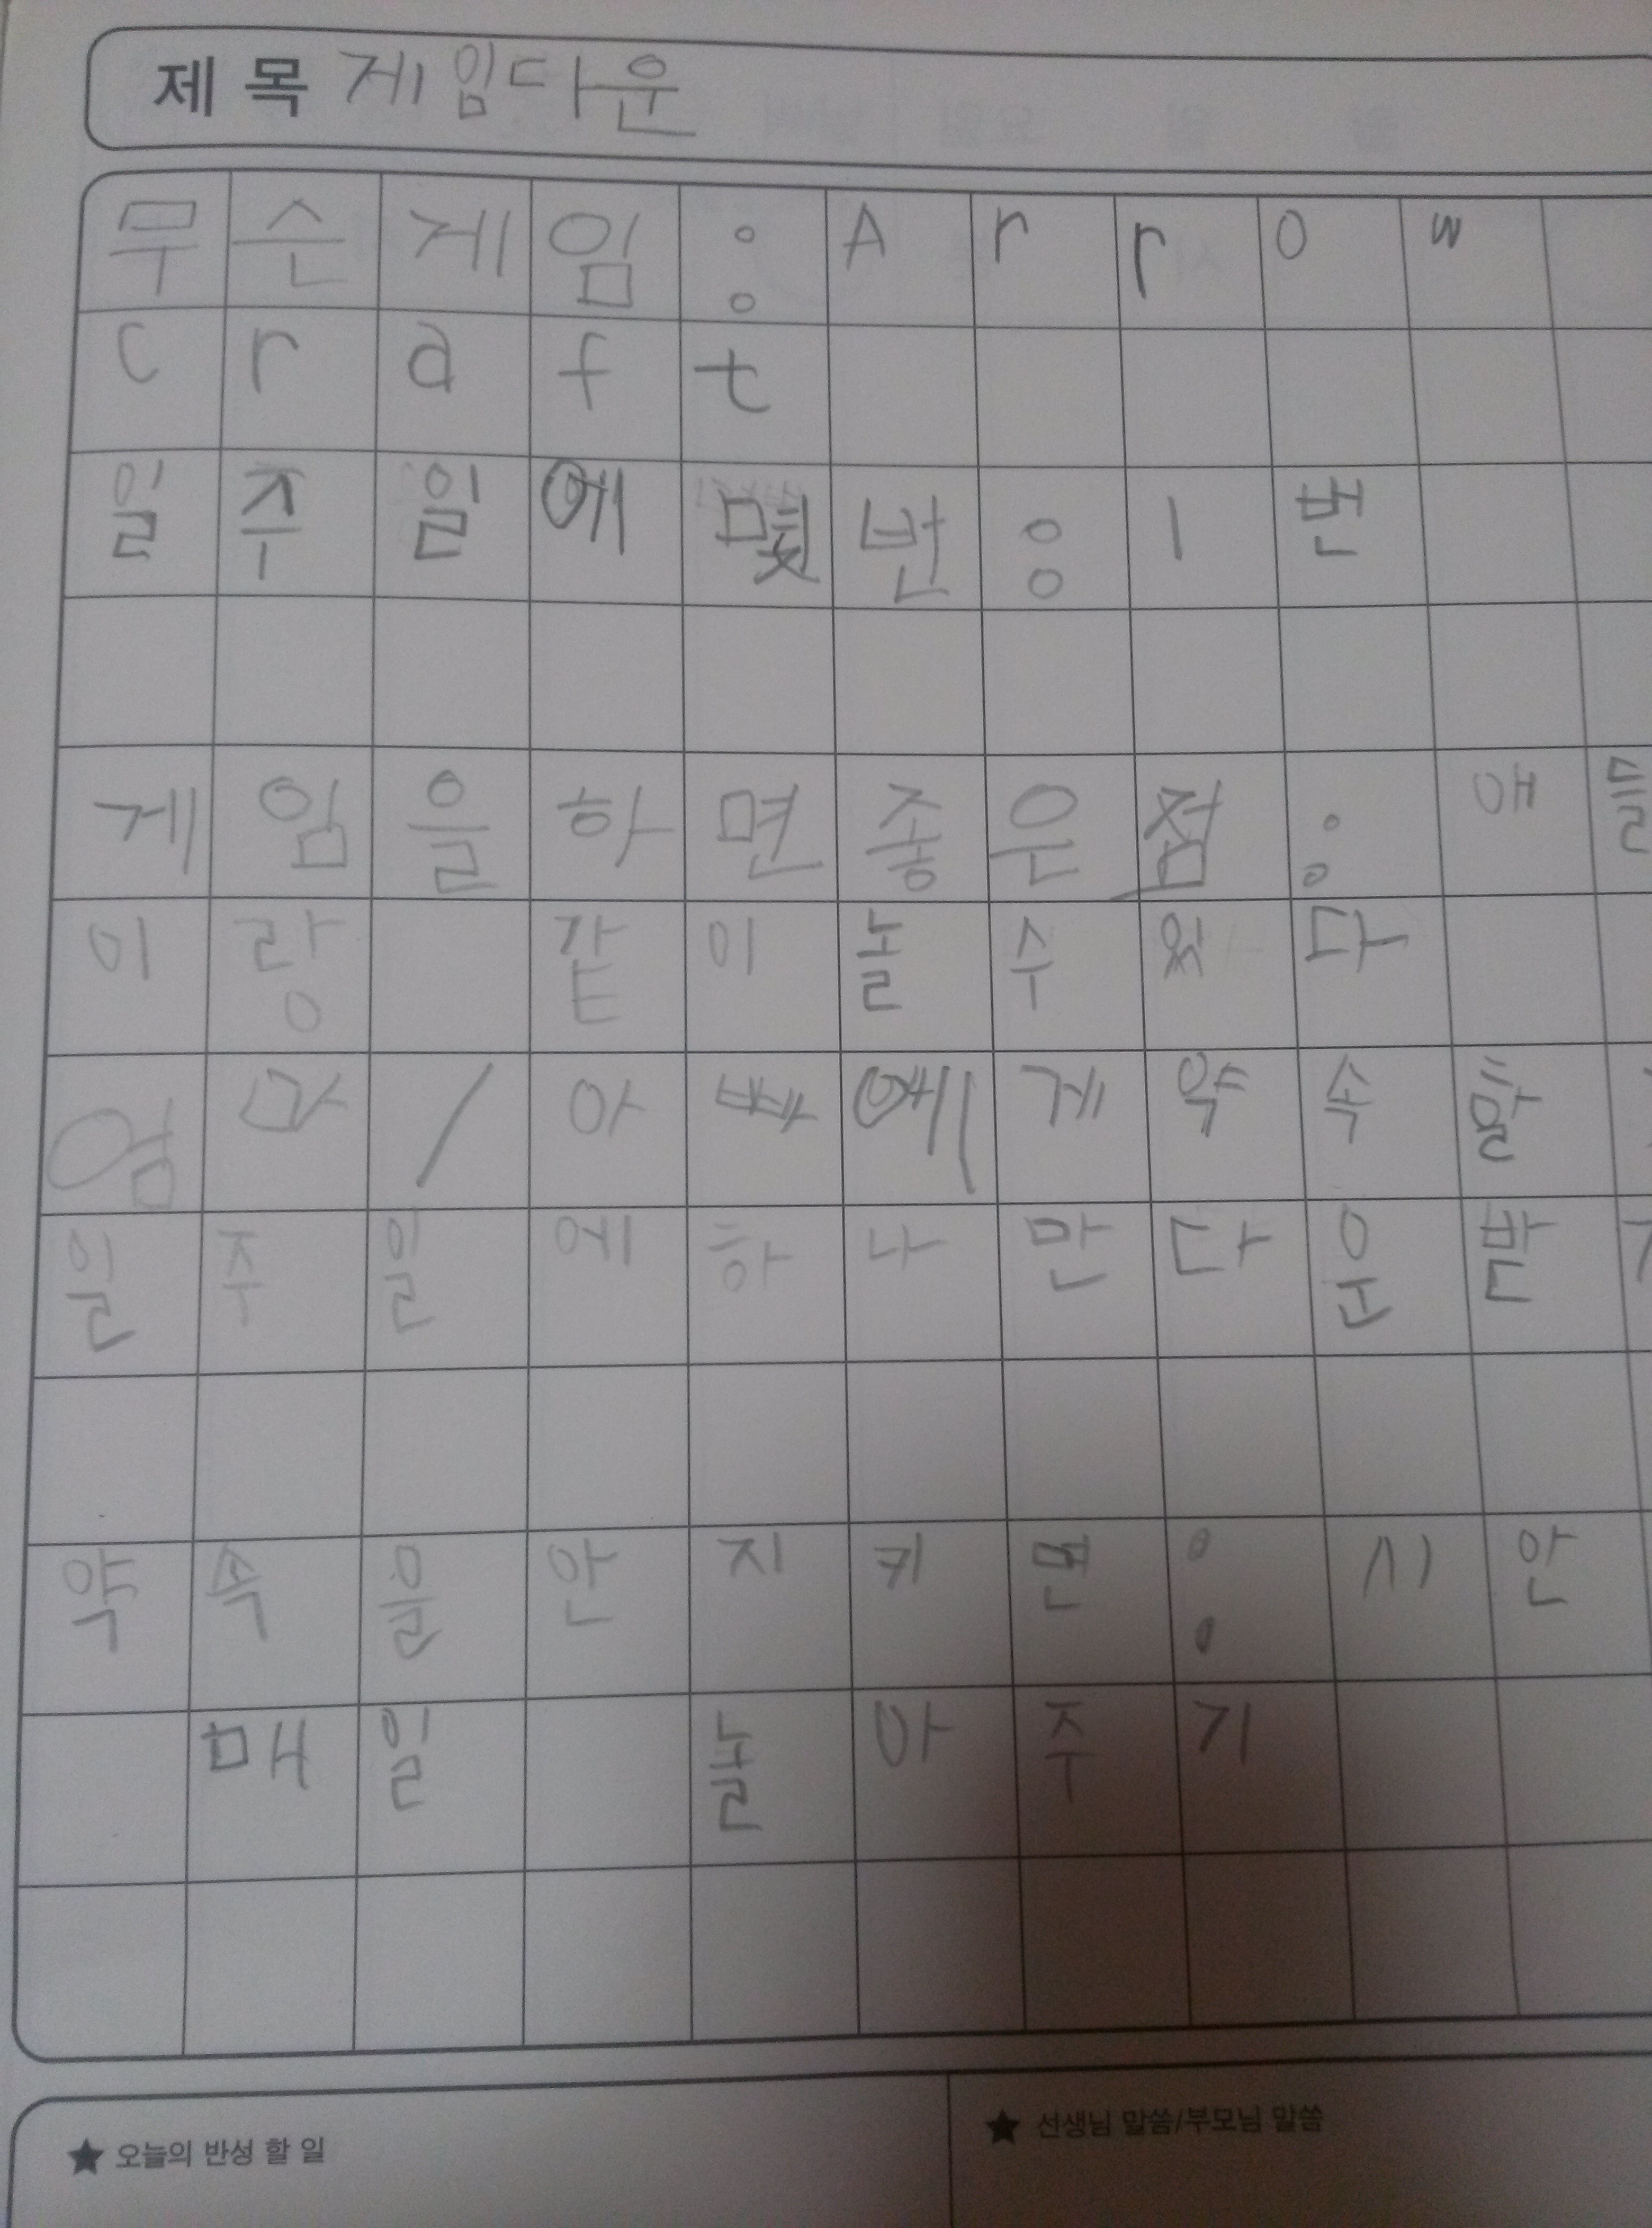 제 목 게임다운
무순게임:Arrow
craft
일주일에 몇번:1번
게임을하면좋은점:애들
이랑 같이놀수있다
엄마/아빠에게약속할
일주일에하나만다운받
약속을안지키면:시안
매일 놀아주기
★ 오늘의 반성 할 일
★ 선생님 말씀/부모님 말씀